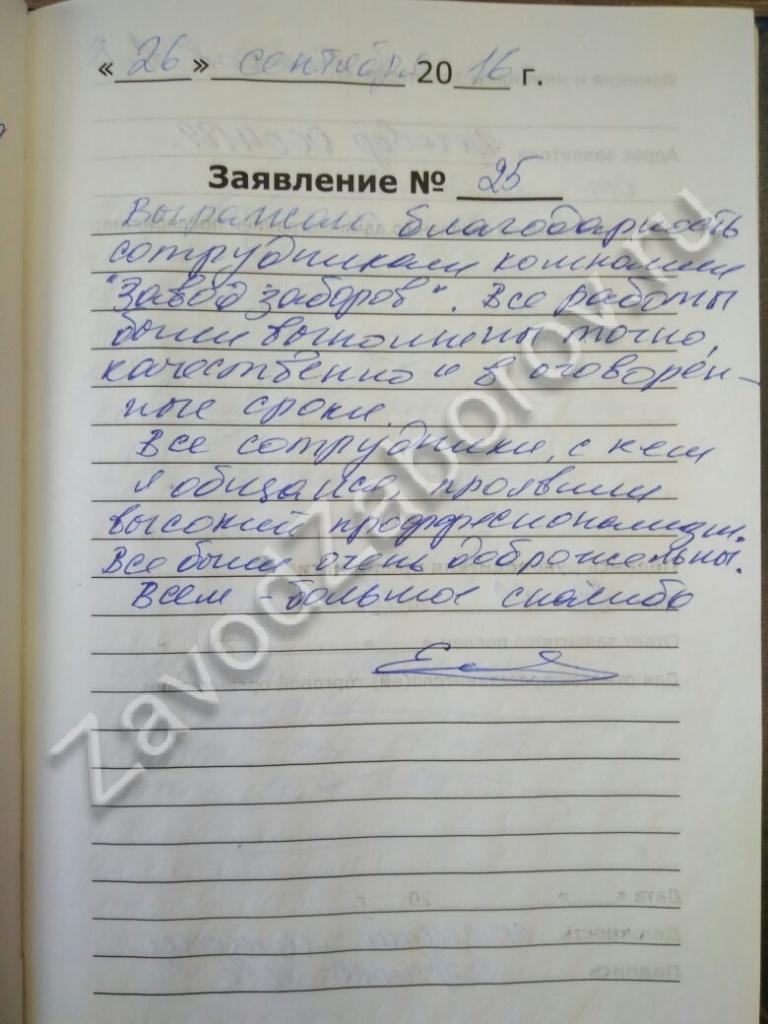 « 26 » сентября 20 16 г.
Заявление № 25
Выражаю благодарность
сотрудникам компании
"Завод заборов". Все работы
были выполнены точно,
качественно и в оговорен-
ные сроки.
Все сотрудники, с кем
я общался, проявили
высокий профессионализм.
Все были очень доброжельны.
Всем - большое спасибо
ZavodZaborov.ru